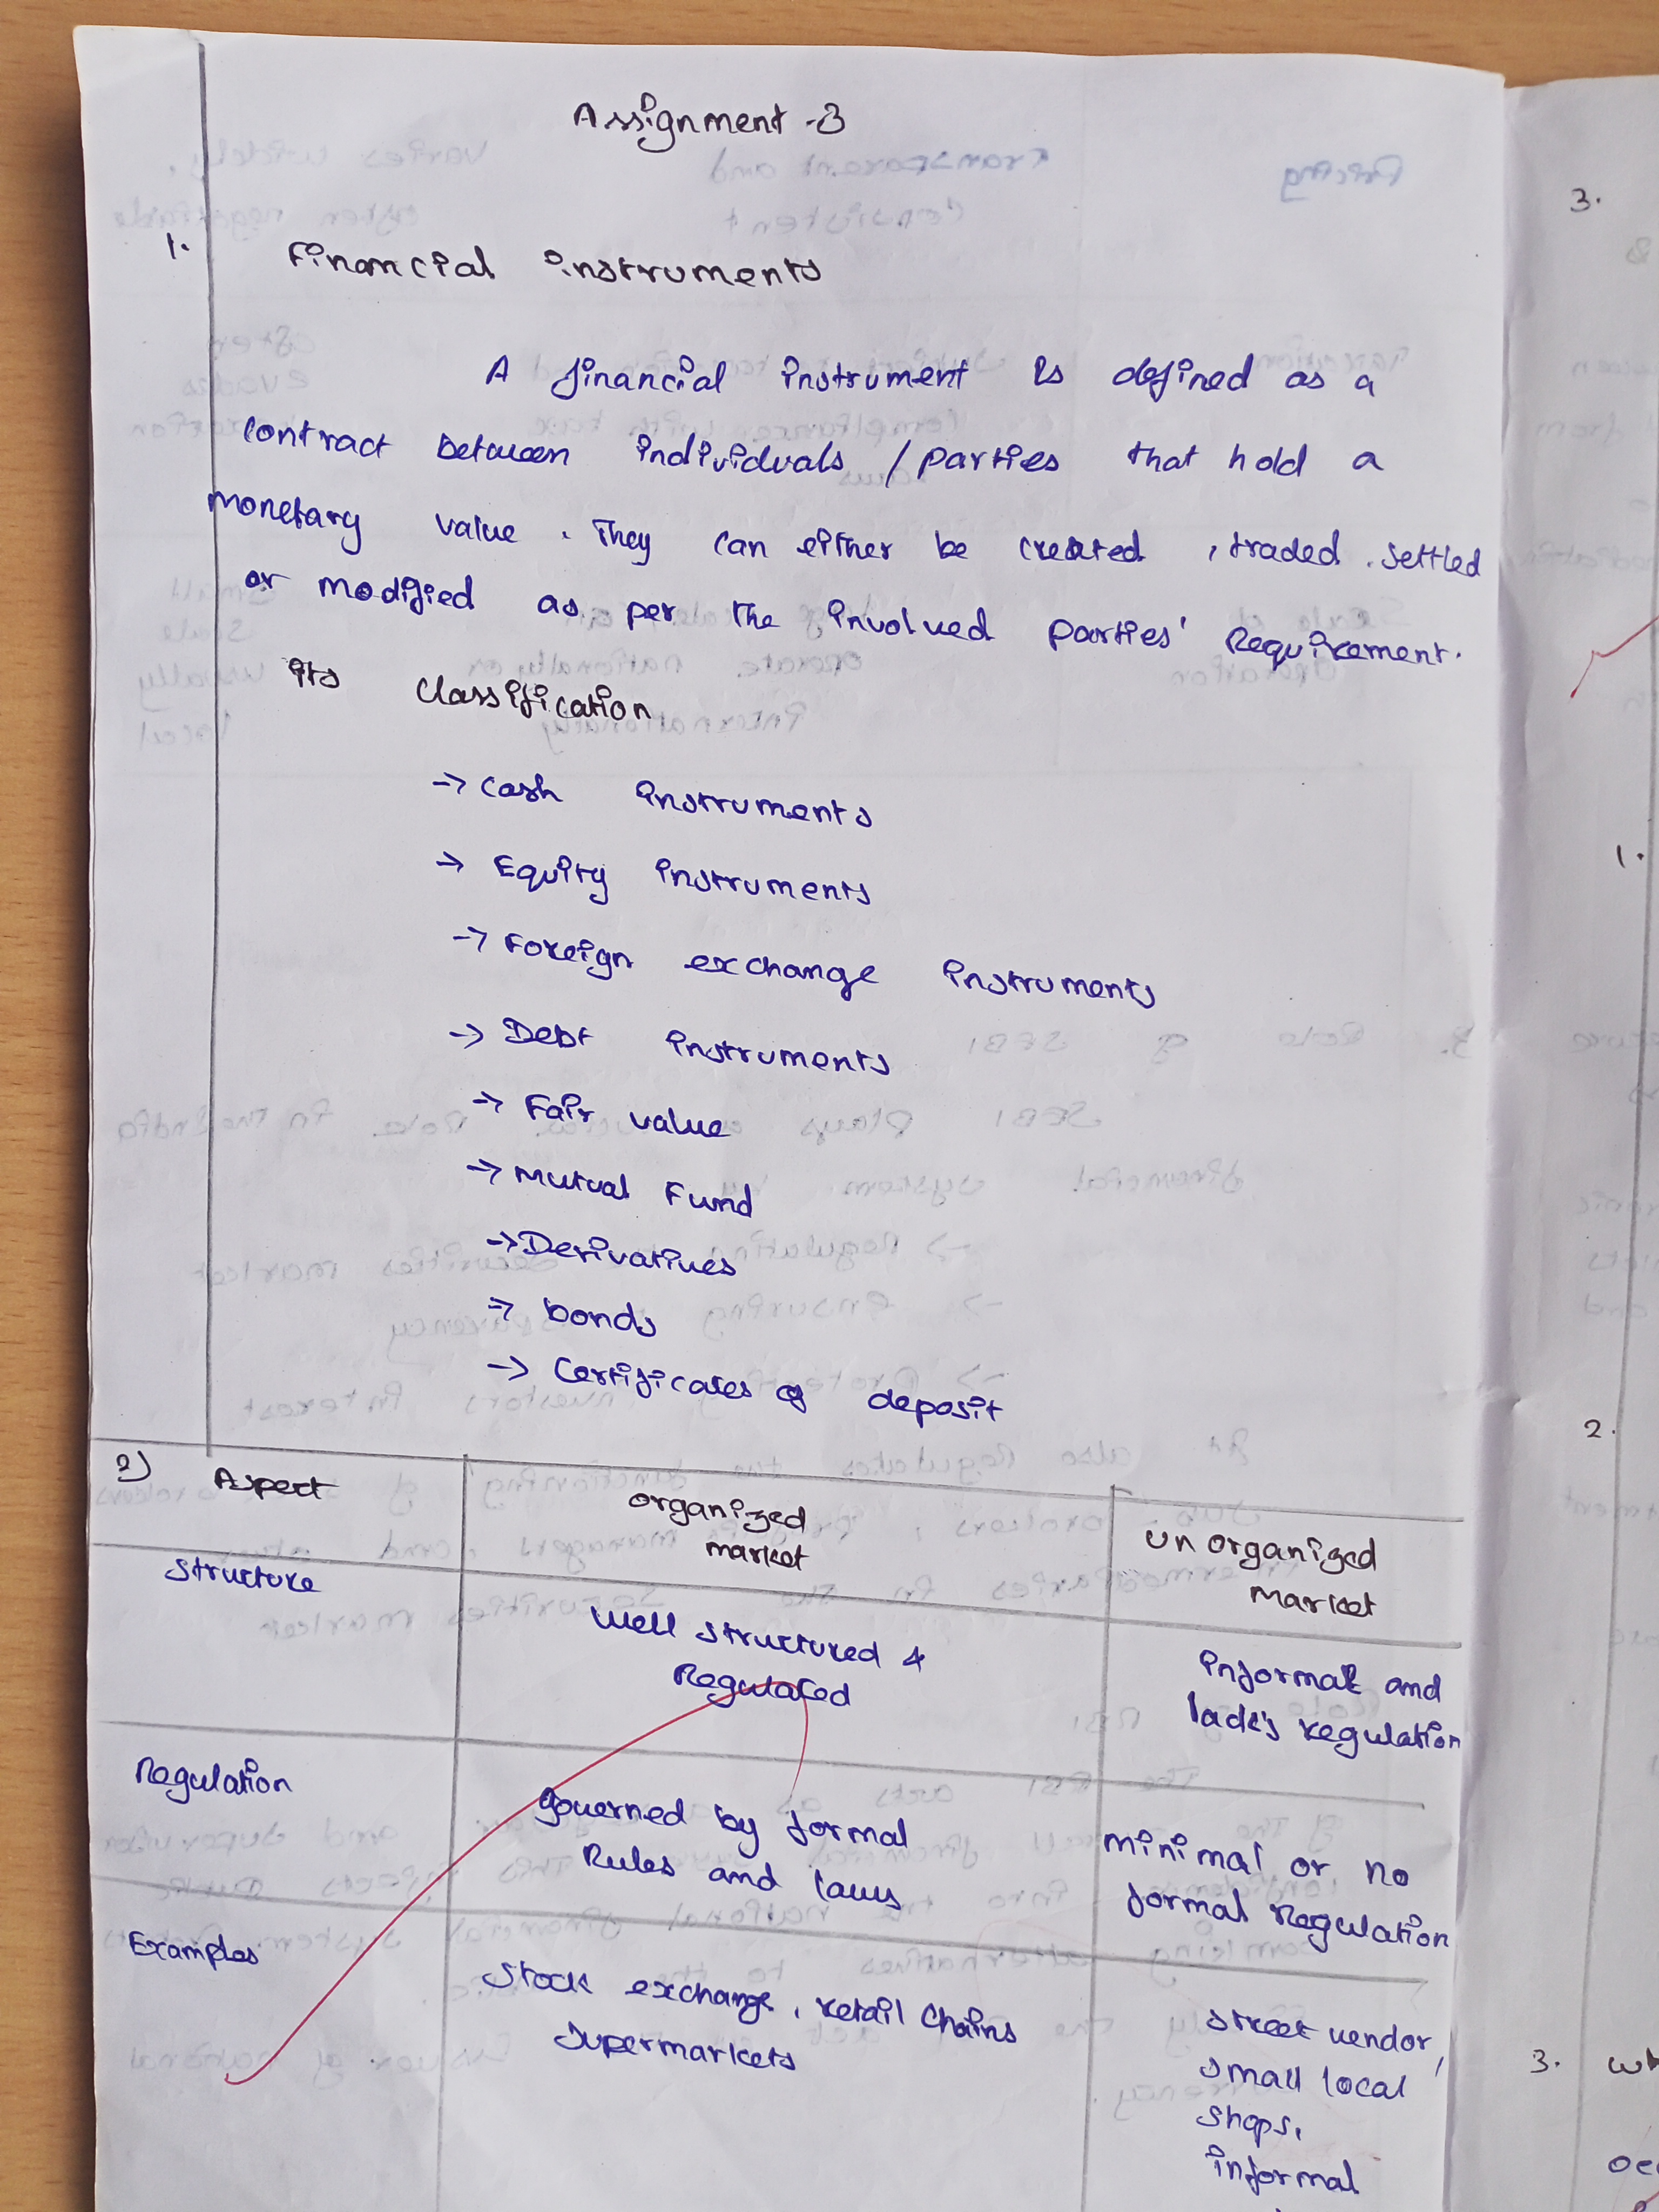 Assignment-3
1. Financial instruments
A financial instrument is defined as a
contract between individuals / parties that hold a
monetary value. They can either be created, traded. settled
or modified as per the involved parties' Requirement.
its classification
→ cash instruments
→ Equity instruments
→ Foreign exchange instruments
→ Debt instruments
→ Fair value
→ mutual Fund
→ Derivatives
→ bonds
→ Certificates of deposit
2) Aspect
organized
market
un organized
market
Structure
well structured &
Regulated
informal and
lack's regulation
Regulation
governed by formal
Rules and laws
minimal or no
formal Regulation
Examples
Stock exchange, retail chains
supermarkets
street vendor,
small local
shops,
informal
3.
1.
2.
3.